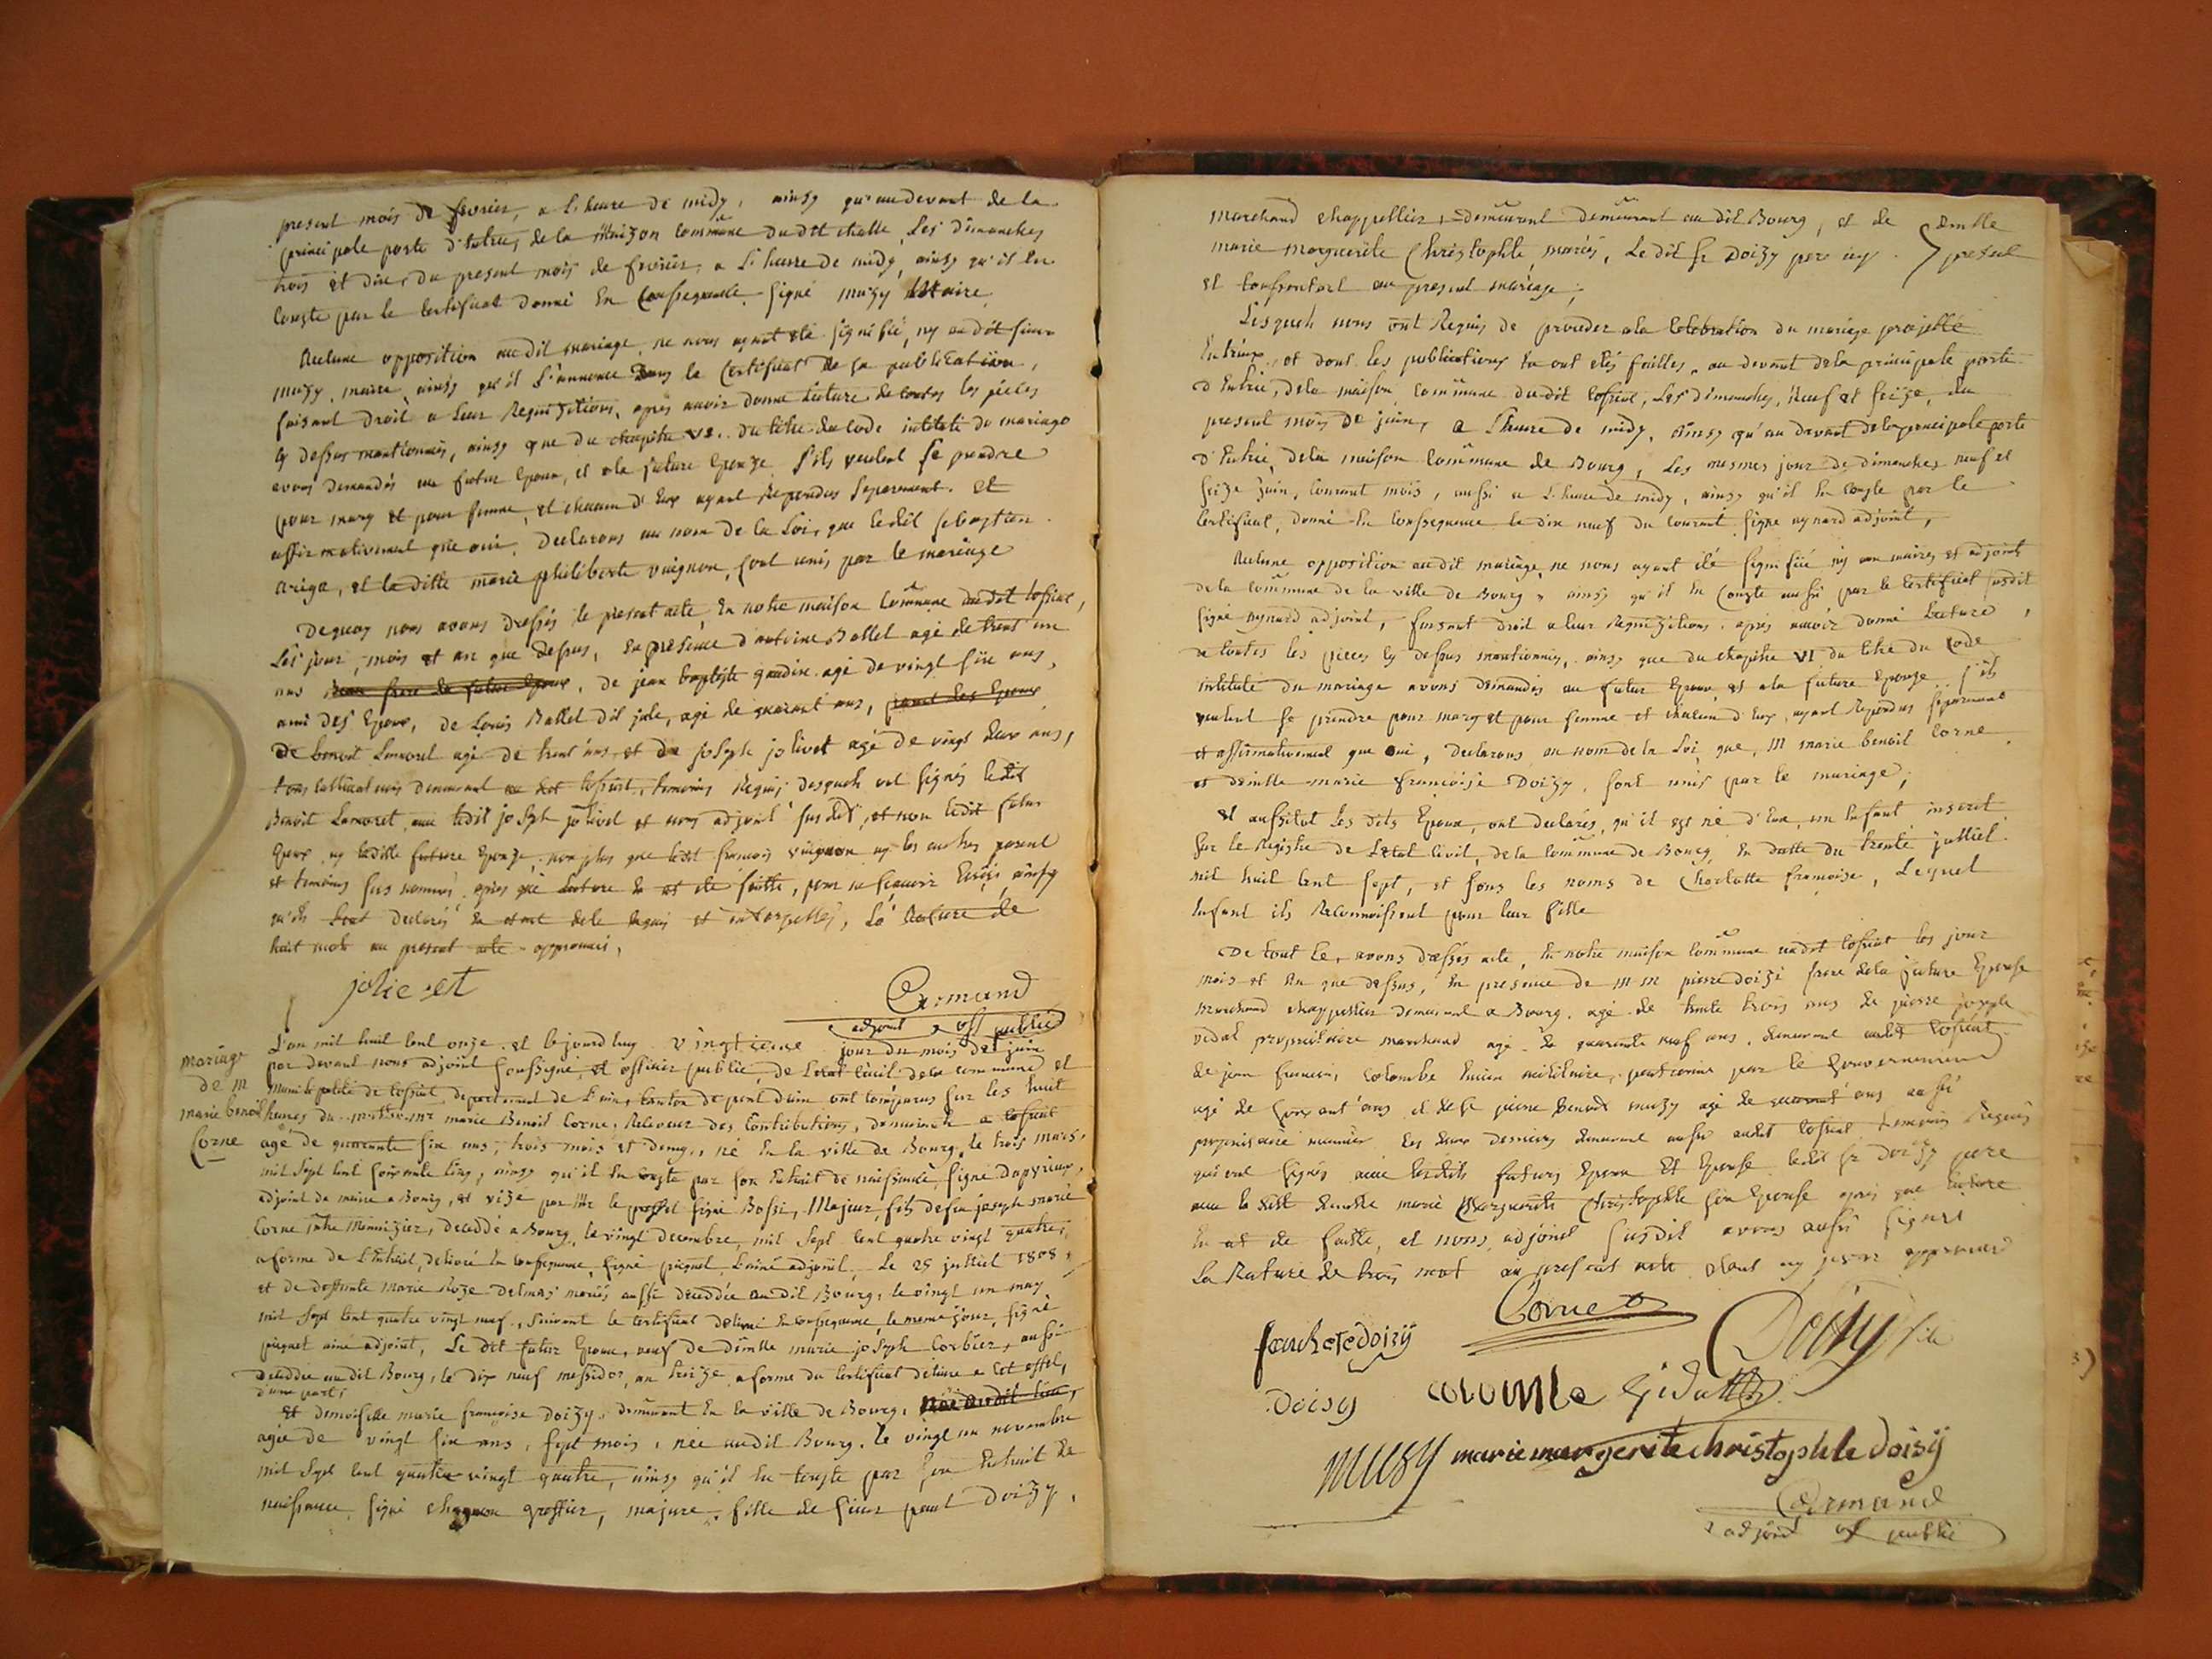 present mois de fevrier, a l'heure de midy, ainsy qu'audevant de la
principale porte d'entree, de la maizon commune dudit challe, les dimanches
trois et dix, du present mois de fevrier, a l'heure de midy, ainsy qu'il en
conste par le certificat donné en consequence signé muzy maire
Aucune opposition audit mariage ne nous ayant été signifié, ny audit sieur
muzy, maire, ainsy qu'il l'annonce dans le certificat de sa publication,
faisant droit a leur requizitions, après avoir donné lecture de toutes les pièces
cy dessus mantionnés, ainsy que du chapitre VI. du titre du code intitulé du mariage
avons demandés au futur epoux, et a la future epouze s'ils veulent se prendre
pour mary et pour femme, et chacun d'eux ayant repondus separement et
affirmativement que oui, declarons au nom de la loi, que ledit sebastien
ariga, et la ditte marie philiberte vuignon, sont unis par le mariage
Dequoy nous avons dressés le present acte, en notre maison commune audit
les jour, mois et an que dessus, en presence d'antoine Ballet agé de trent un
ans, de jean baptiste gaudin agé de vingt six ans,
ami des epoux, de Louis Ballet dit jule, agé de quarant ans,
de benoit Lamoret agé de trent ans, et de joseph jolivet agé de vingt deux ans,
tous cultivateurs demeurant temoins requis desquels ont signés ledit
Benoit Lamoret, avec ledit joseph jolivet et nous adjoint susdit, et non ledit futur
epoux, ny laditte future epouze, non plus que ledit francois vuignon ny les autres parent
et temoins sus nommés, après que lecture en at été faitte, pour ne sçavoir ecrire, ainsy
qu'ils l'ont declarés en étant été requis et interpellés, la rature de
huit mots au present acte approuvés,
jolivet
Cormand
adjoint off public
mariage
de m
marie benoit
Corne
L'an mil huit cent onze et lejourdhuy vingtieme jour du mois de juin
par devant nous adjoint soussigné, et officier public, de l'etat civil de la commune et
municipalité de, departement de l'ain, canton de pont dain ont comparus sur les huit
heures du marie Benoit Corne, Receveur des Contributions, demeurant a
agé de quarante six ans, trois mois et demy, né en la ville de Bourg, le trois mars,
mil sept cent soixante cinq, ainsy qu'il en conste par son extrait de naissance, signé
adjoint du maire a Bourg, et vizé par Mr le prefet signé Bossi, Majeur, fils de feu joseph marie
Corne, decedé a Bourg, le vingt decembre, mil sept cent quatre vingt quatre,
a forme de l'extrait, delivré en consequence, signé piquet l'ainé adjoint, le 25 juilliet 1808,
et de deffunte marie Roze Delmas mariés aussi decedée audit Bourg, le vingt un may
mil sept cent quatre vingt neuf, suivant le certificat delivré en consequence, le meme jour, signé
piquet ainé adjoint, Le dit futur epoux, veuf de demlle marie joseph Corbier, aussi
decedée audit Bourg, le dix neuf messidor, an treize, a forme du certificat delivré a cet effet,
d'une part,
Et demoiselle marie francoise Doizy, demeurant en la ville de Bourg, née audit lieu,
agée de vingt six ans, sept mois, née audit Bourg, le vingt un novembre
mil sept cent quatre vingt quatre, ainsy qu'il en conste par son extrait de
naissance signé greffier, majeure, fille de sieur paul Doizy,
marchand chappellier, demeurant demeurant au dit Bourg, et de demlle
marie marguerite Christophle, mariés, Le dit Sr Doizy pere icy present
et consentant au present mariage;
Lesquels nous ont Requis de proceder a la Celebration du mariage projetté
entr'eux, et dont les publications en ont etés faittes, au devant de la principale porte
d'Entrée, de la maison commune du dit, Les dimanches, Neuf et seize, du
present mois de juin, a l'heure de midy, ainsy qu'au devant de la principale porte
d'Entrée, de la maison Commune de Bourg, Les mesmes jour de dimanches neuf et
seize juin, courant mois, aussi a l'heure de midy, ainsy qu'il en conste par le
Certificat, donné en consequence le dix neuf du courant signé aynard adjoint,
Aucune opposition audit mariage, ne nous ayant été signifié ny aux maires et adjoints
de la commune de la ville de Bourg, ainsy qu'il en Conste aussi par le Certificat susdit
signé aynard adjoint, faisant droit a leur requizitions après avoir donné lecture,
de toutes les pieces cy dessus mantionnés, ainsy que du chapitre VI du titre du Code
intitulé du mariage avons demandés au futur epoux, et a la future epouze s'ils
veulent se prendre pour mary et pour femme et chacun d'eux, ayant repondus separement
et affirmativement que oui, declarons au nom de la loi, que, M marie benoit Corne,
et demlle marie francoise Doizy, sont unis par le mariage,
Et aussitot les dits epoux, ont declarés, qu'il est né d'eux, un enfant inscrit
sur le registre de l'etat civil, de la commune de Bourg, en datte du trente juilliet
mil huit cent sept, et sous les noms de Charlotte francoise, Lequel
enfant ils reconnoissent pour leur fille
De tout ce, avons dressés acte, en notre maison commune audit les jour
mois et an que dessus, en presence de M M pierre doizi frere de la future epouse
marchand chappellier demeurant a Bourg, agé de trente trois ans de pierre joseph
vidal proprietaire marchand agé de quarente neuf ans, demeurant audit
de jean francois, Colombe militaire, pentionné par le Gouvernement
agé de soixant'ans et de Sr pierre Benoit muzy agé de quarant ans aussi
proprietaire les deux derniers demeurant aussi audit temoins requis
qui ont signés avec lesdits futurs epoux et epouse ledit Sr Doizy pere
avec la ditt demlle marie Marguerite Christophle son epouse après que lecture
en at été faitte, et nous, adjoint susdit avons aussi signé
La Rature de trois mot au present acte etant approuvé
Corne
francoise doizij
Doizy fils
Doisy
colomble
Vidal
muzy
marie margerite christophle doisij
Cormand
adjoint off public